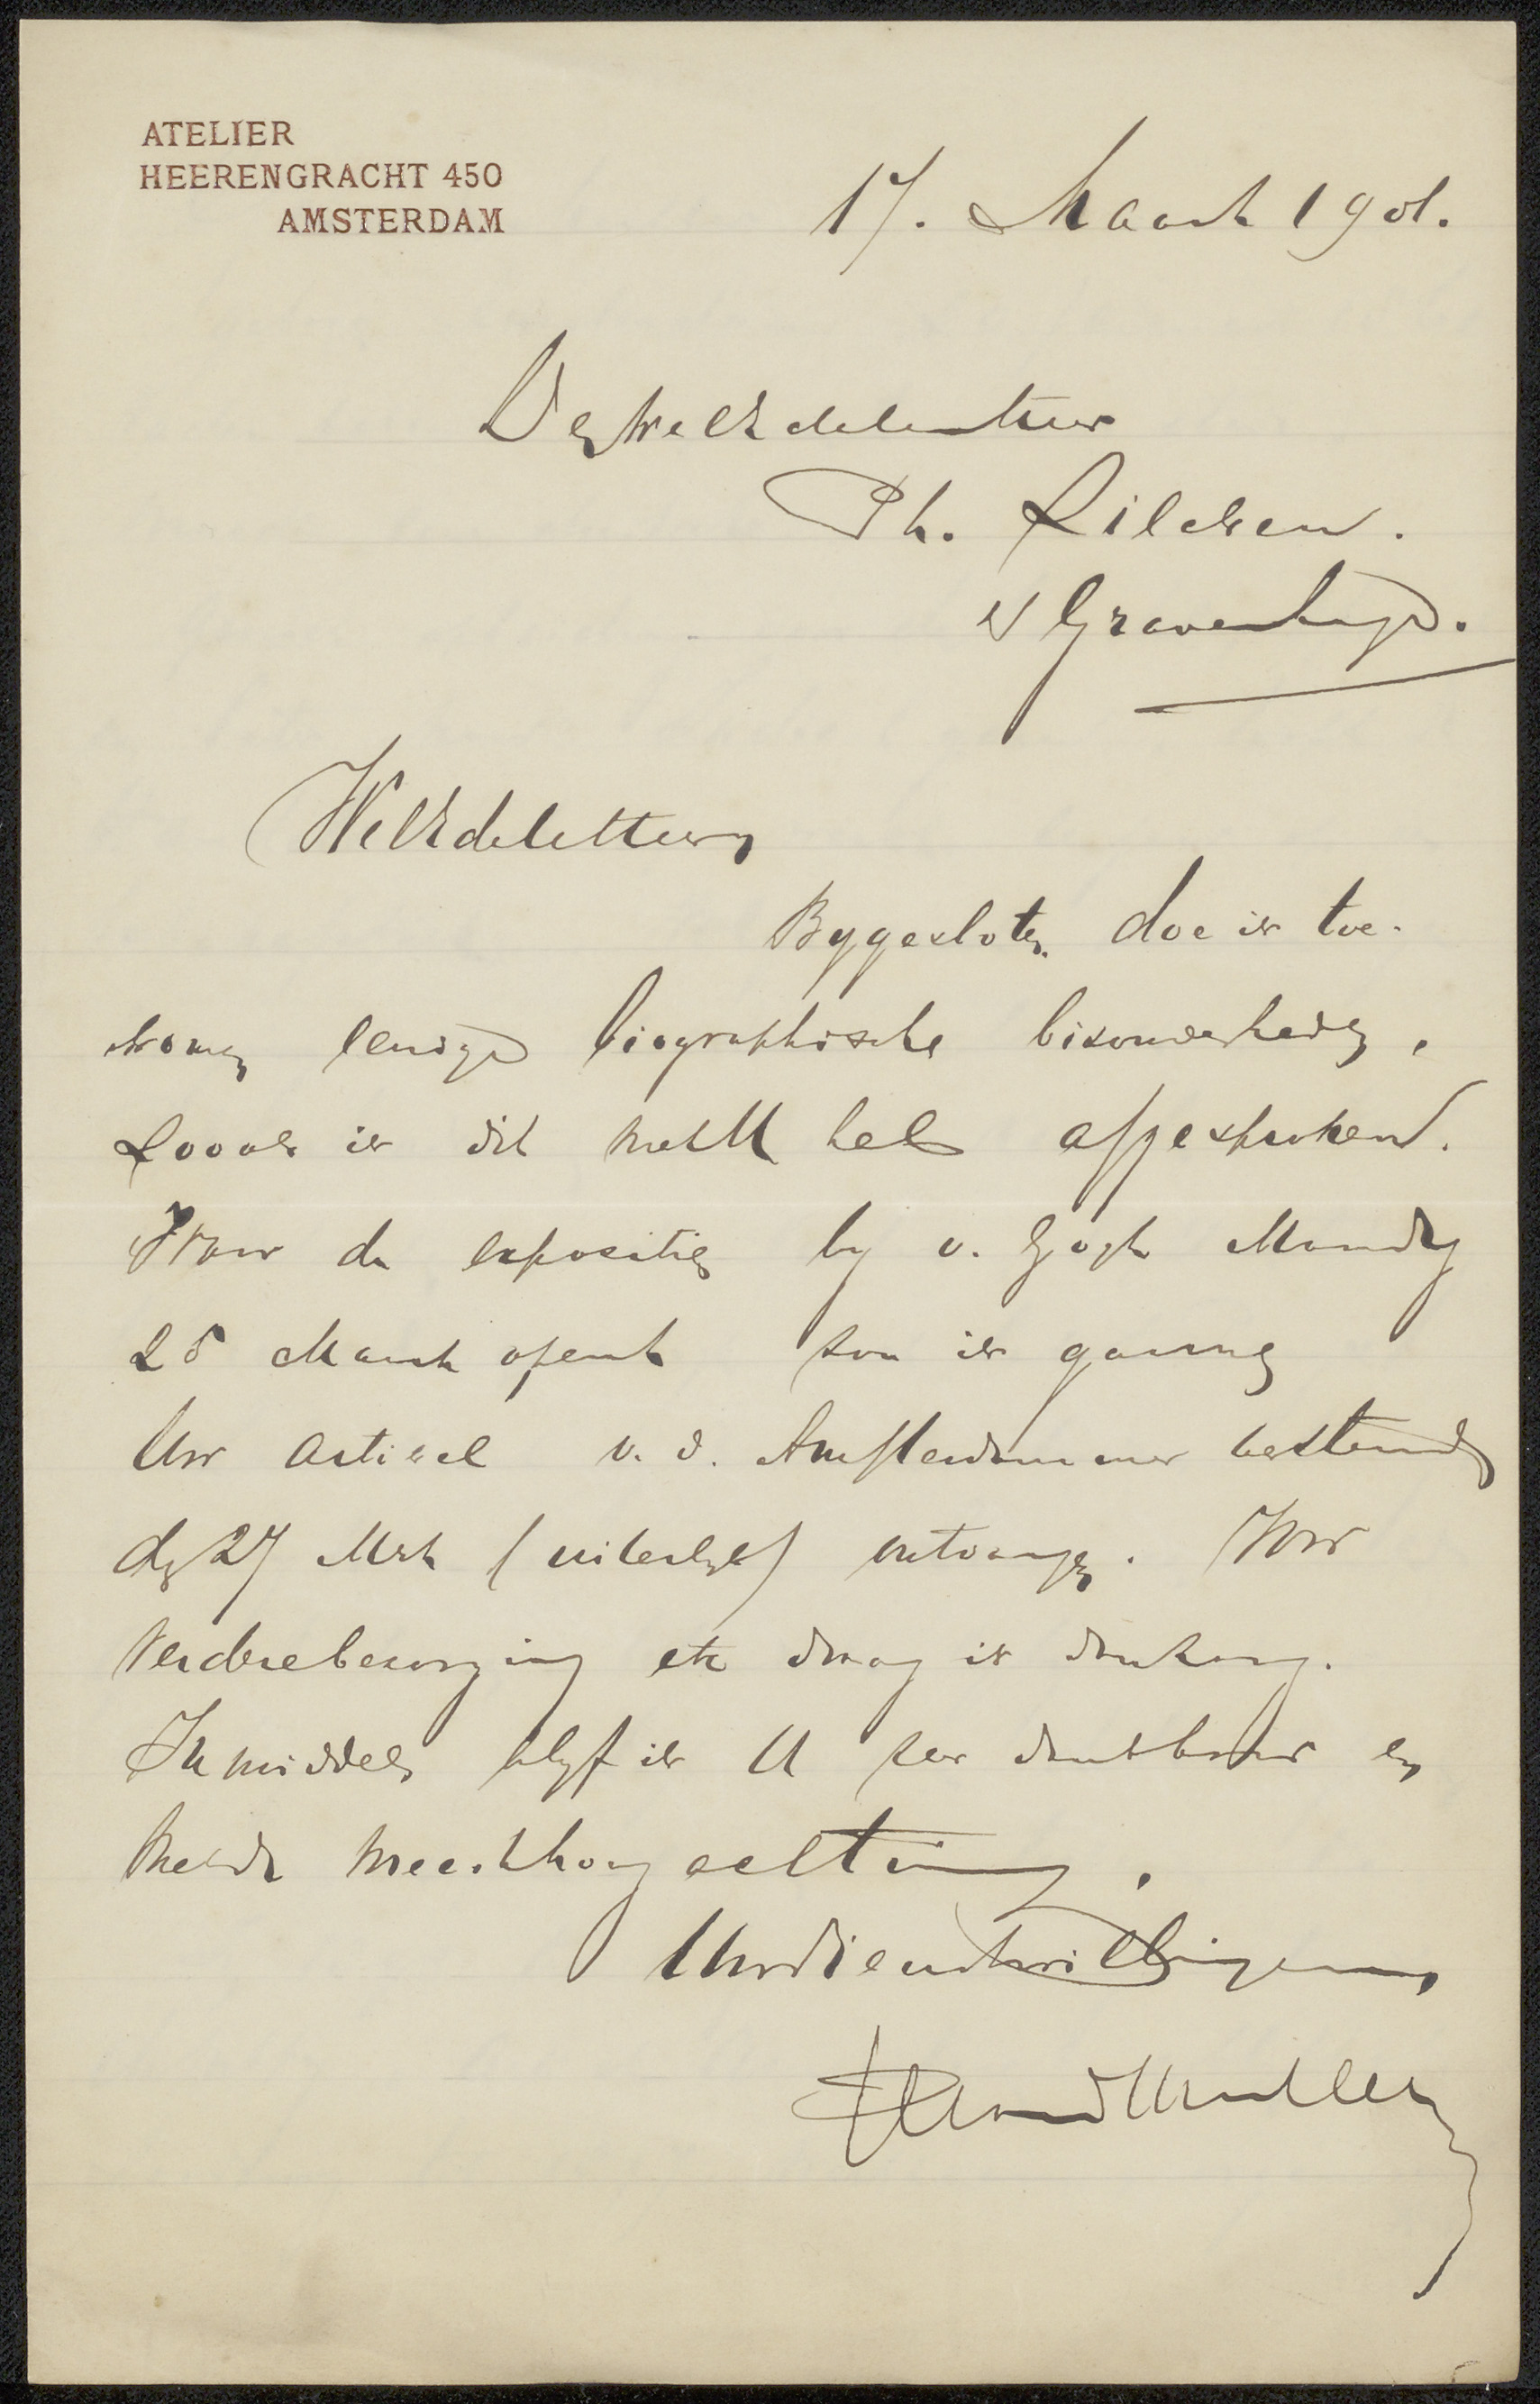 ATELIER
HEERENGRACHT 450
AMSTERDAM
17. Maart 1901.
Den WelEdelen Heer
Ph. Zilcken.
's Gravenhage.
WelEdele Heer
Bygesloten doe ik toe-
komen eenige biographische bizonderheden,
Zooals ik dit met U heb afgesproken.
Daar de expositie by v. Gogh Maandag
25 Maart opent zou ik gaarne
Uw artikel v. d. Amsterdammer bestemd
den 27 Mrt (uiterlyk) ontvangen. Voor
verdere bezorging etc draag ik dan zorg.
Inmiddels blyf ik U zeer dankbaar en
met de meeste hoogachting,
Uw dienstwillige